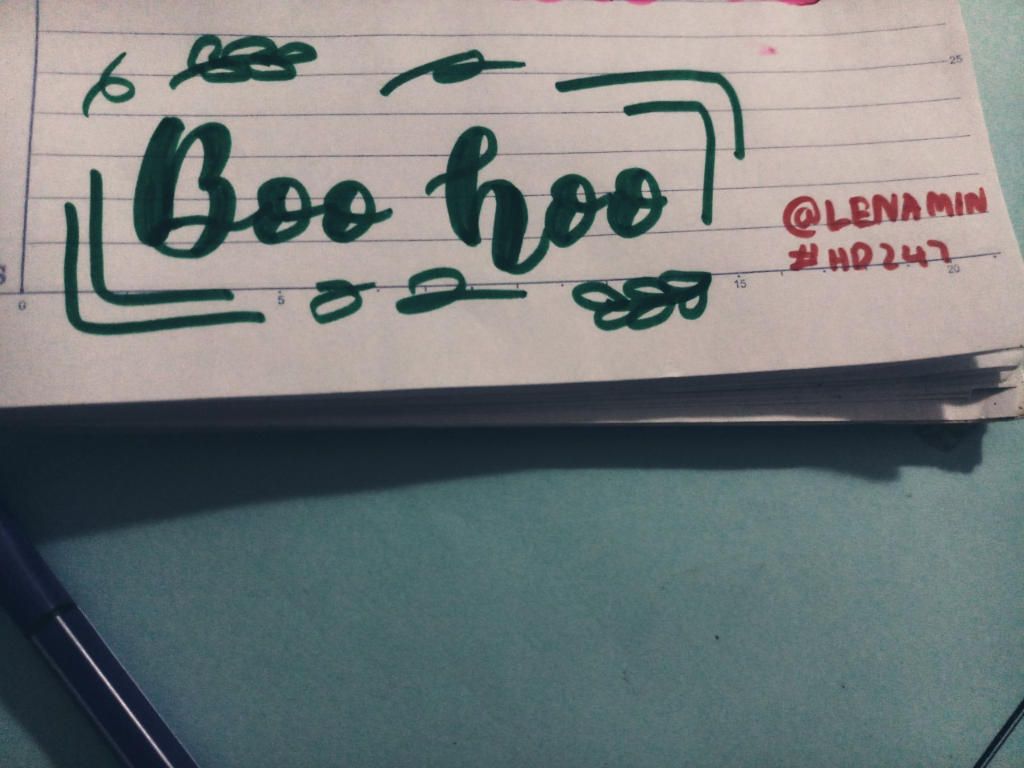 25
Boo hoo
@LENAMIN
#HD247
0 5 15 20